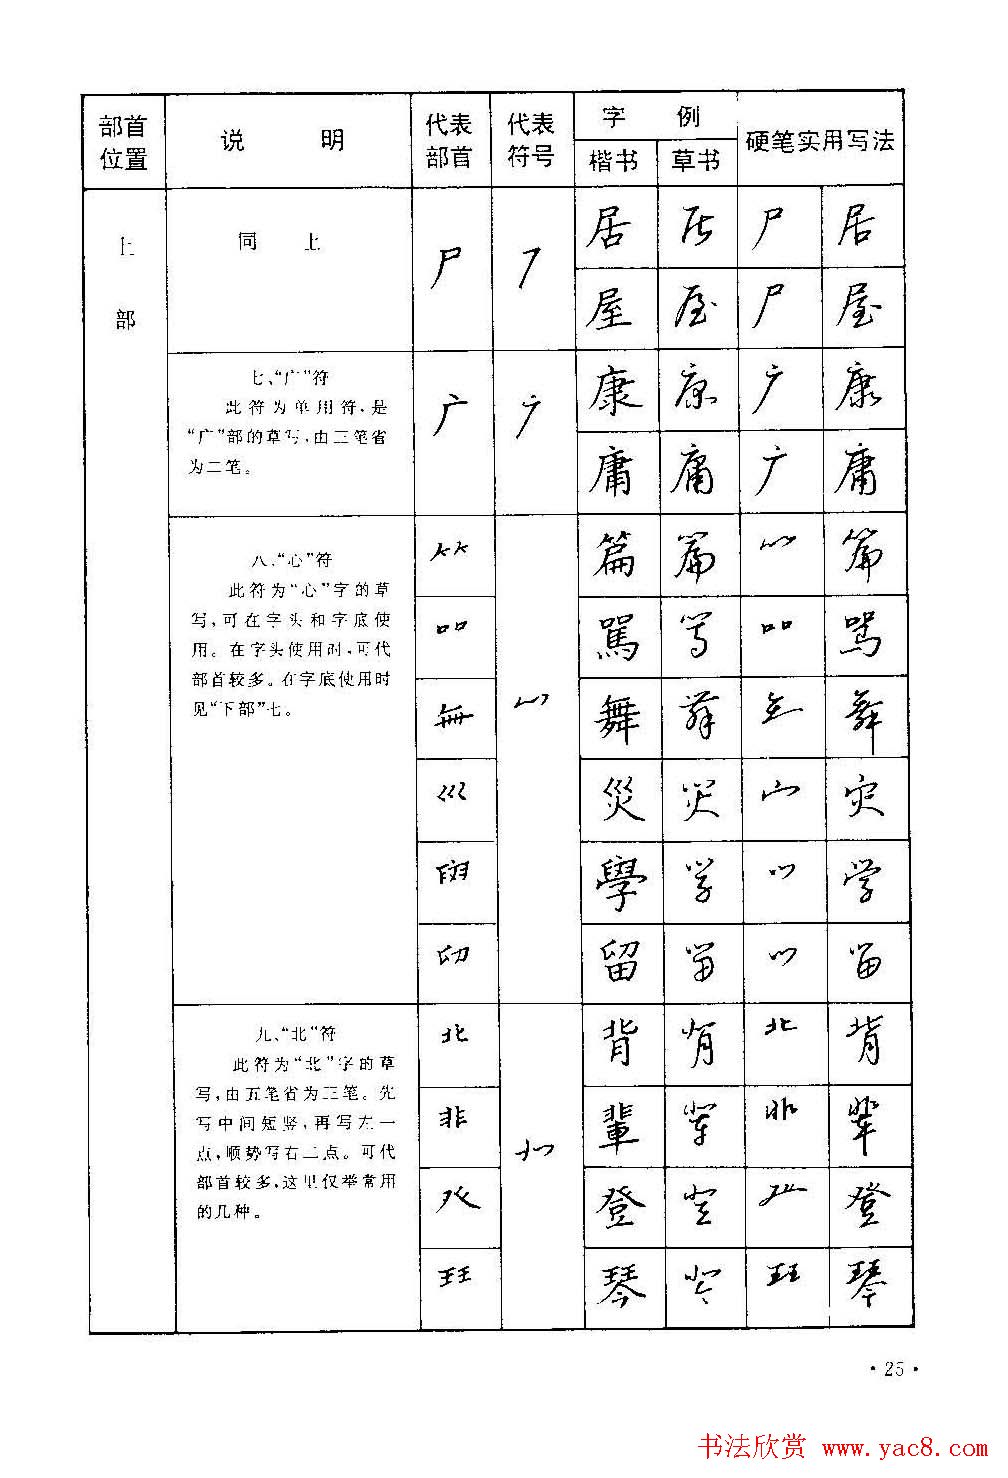 部首位置 说 明 代表部首 代表符号 字 例 硬笔实用写法
楷书 草书
上部
同 上
尸 居 居 尸 居
屋 屋 尸 屋
七、“广”符
此符为单用符,是
“广”部的草写,由三笔省
为二笔。
广 康 康 广 康
庸 庸 广 庸
八、“心”符
此符为“心”字的草
写,可在字头和字底使
用。在字头使用时,可代
部首较多。在字底使用时
见“下部”七。
篇 篇 篇
吅 駡 骂 骂
舞 舞 舞
巛 災 灾 灾
學 学 学
留 留 留
九、“北”符
此符为“北”字的草
写,由五笔省为三笔。先
写中间短竖,再写左一
点,顺势写右二点。可代
部首较多,这里仅举常用
的几种。
北 背 背 北 背
非 輩 辈 非 辈
癶 登 登 癶 登
玨 琴 琴 玨 琴
·25·
书法欣赏 www.yac8.com